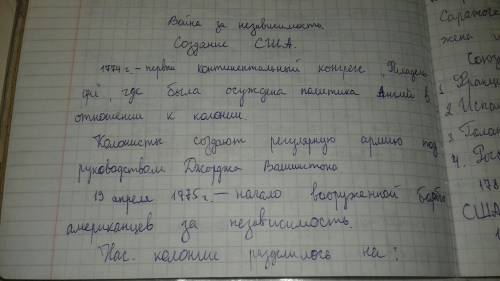 Война за независимость
Создание США.
1774 г. – первый континентальный конгресс „Филадель
фи", где была осуждена политика Англии в
отношении к колонии.
Колонисты создают регулярную армию под
руководством Джорджа Вашингтона
19 апреля 1775 г. – начало вооруженной борьбы
американцев за независимость.
Нас. колонии разделилось на:
Саратога
жена и
Союз
1 Франц
2 Испа
3 Голлан
4. Рос
178
США